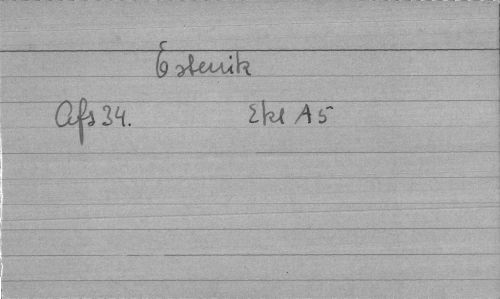 Estenik
Afs 34. Ekl A5